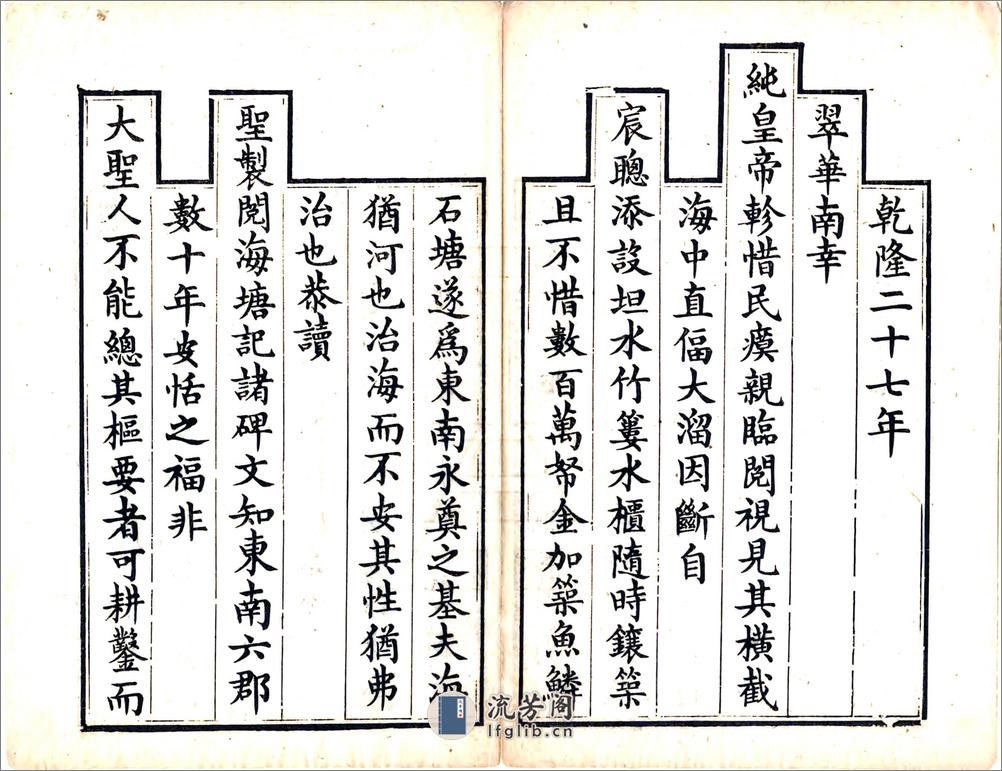 乾隆二十七年
翠華南幸
純皇帝軫惜民瘼親臨閱視見其橫截
海中直偪大溜因斷自
宸聰添設坦水竹簍水櫃隨時鑲築
且不惜數百萬帑金加築魚鱗
石塘遂爲東南永奠之基夫海
猶河也治海而不安其性猶弗
治也恭讀
聖製閱海塘記諸碑文知東南六郡
數十年安恬之福非
大聖人不能總其樞要者可耕鑿而
流芳阁
lfglib.cn